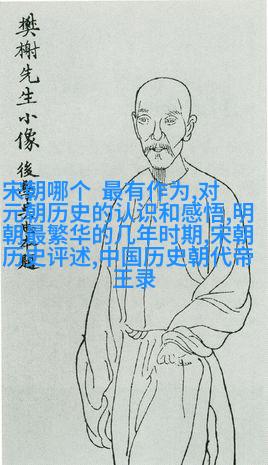 樊榭先生小像
後學
宋朝哪个 最有作为,对
元朝历史的认识和感悟,明
朝最繁华的几年时期,宋朝
历史评述,中国历史朝代帝
王录